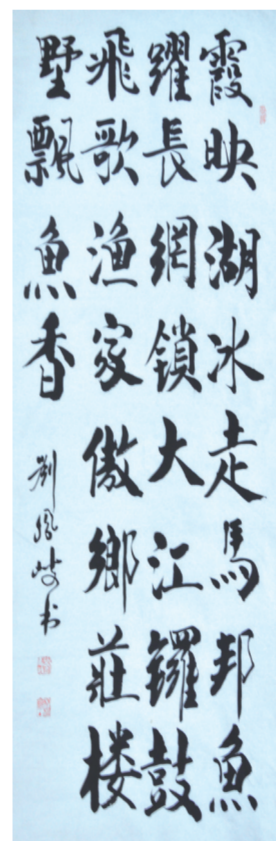 霞映湖冰走馬邦魚
躍長網鎖大江鑼鼓
飛歌漁家傲鄉莊楼
墅飄魚香
劉鳳岐书